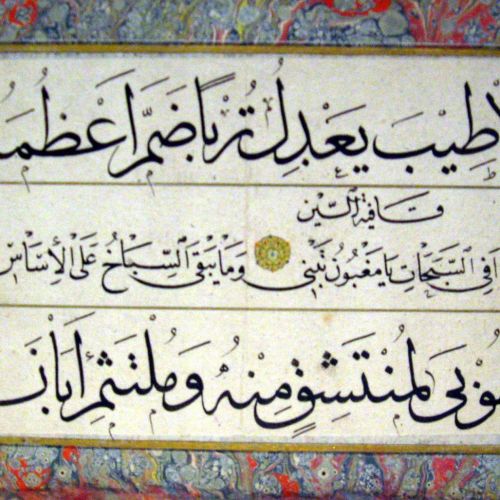 لا طِيبَ يَعْدِلُ تُرْبًا ضَمَّ اَعْظُمَهُ
قافية السين
اَفِي السَّبَخَاتِ يَا مَغْبُونُ تَبْنِي وَمَا يَبْقَى السِّبَاخُ عَلَى الْأَسَاسِ
طُوبَى لِمُنْتَشِقٍ مِنْهُ وَمُلْتَثِمِ اَبَانَ